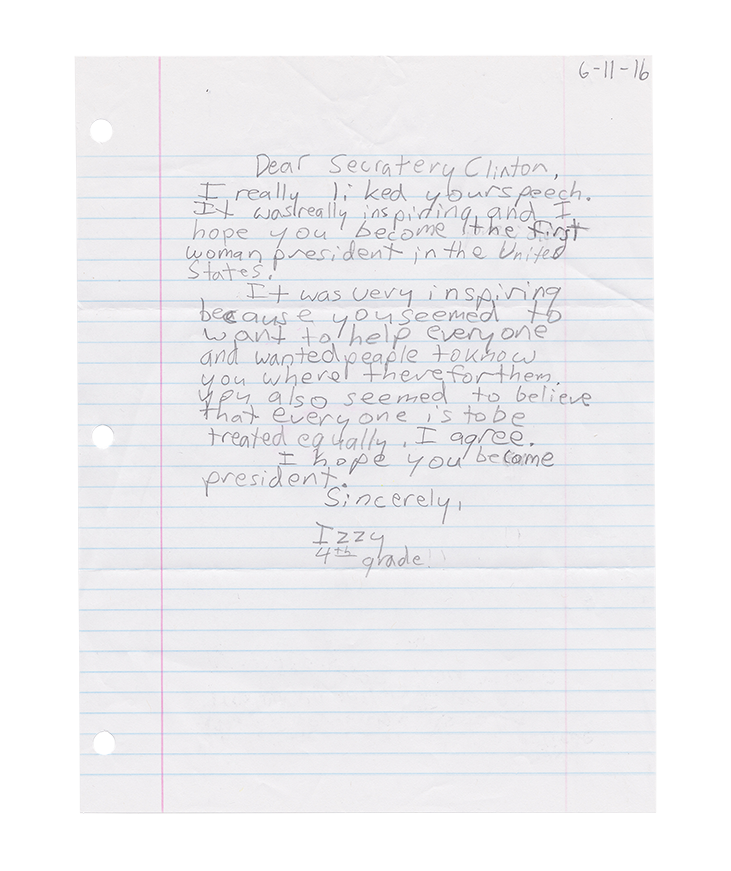 6-11-16
Dear Secratery Clinton,
I really liked your speech.
It was really inspiring, and I
hope you become the first
woman president in the United
States.
It was very inspiring
because you seemed to
want to help everyone
and wanted people to know
you where there for them.
You also seemed to believe
that everyone is to be
treated equally. I agree.
I hope you become
president.
Sincerely,
Izzy
4th grade